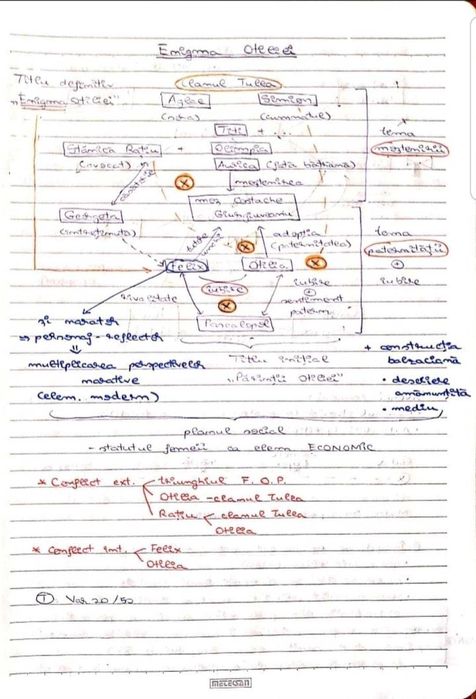 Enigma Otiliei
Titlu definitiv
"Enigma Otiliei"
Clanul Tulea
Aglae
Simion
(sora)
(cumnatul)
Titi +
Stănică Rațiu + Olimpia
(avocat)
Aurica (fata bătrână)
moștenirea
tema
moștenirii
moș Costache
Giurgiuveanu
Georgeta
(întreținuta)
adopția
(paternitatea)
tema
paternității
+
iubire
Felix
Otilia
iubire
rivalitate
iubire
+
sentiment
patern
Pascalopol
și narator
=> personaj-reflector
multiplicarea perspectivelor
narative
(elem. modern)
Titlu inițial
"Părinții Otiliei"
+ construcția
balzaciană
• descriere
amănunțită
• mediu
planul social
- statutul femeii ca elem ECONOMIC
* Conflict ext. triunghiul F. O. P.
Otilia - clanul Tulea
Rațiu clanul Tulea
Otilia
* Conflict int. Felix
Otilia
T Var 20/50